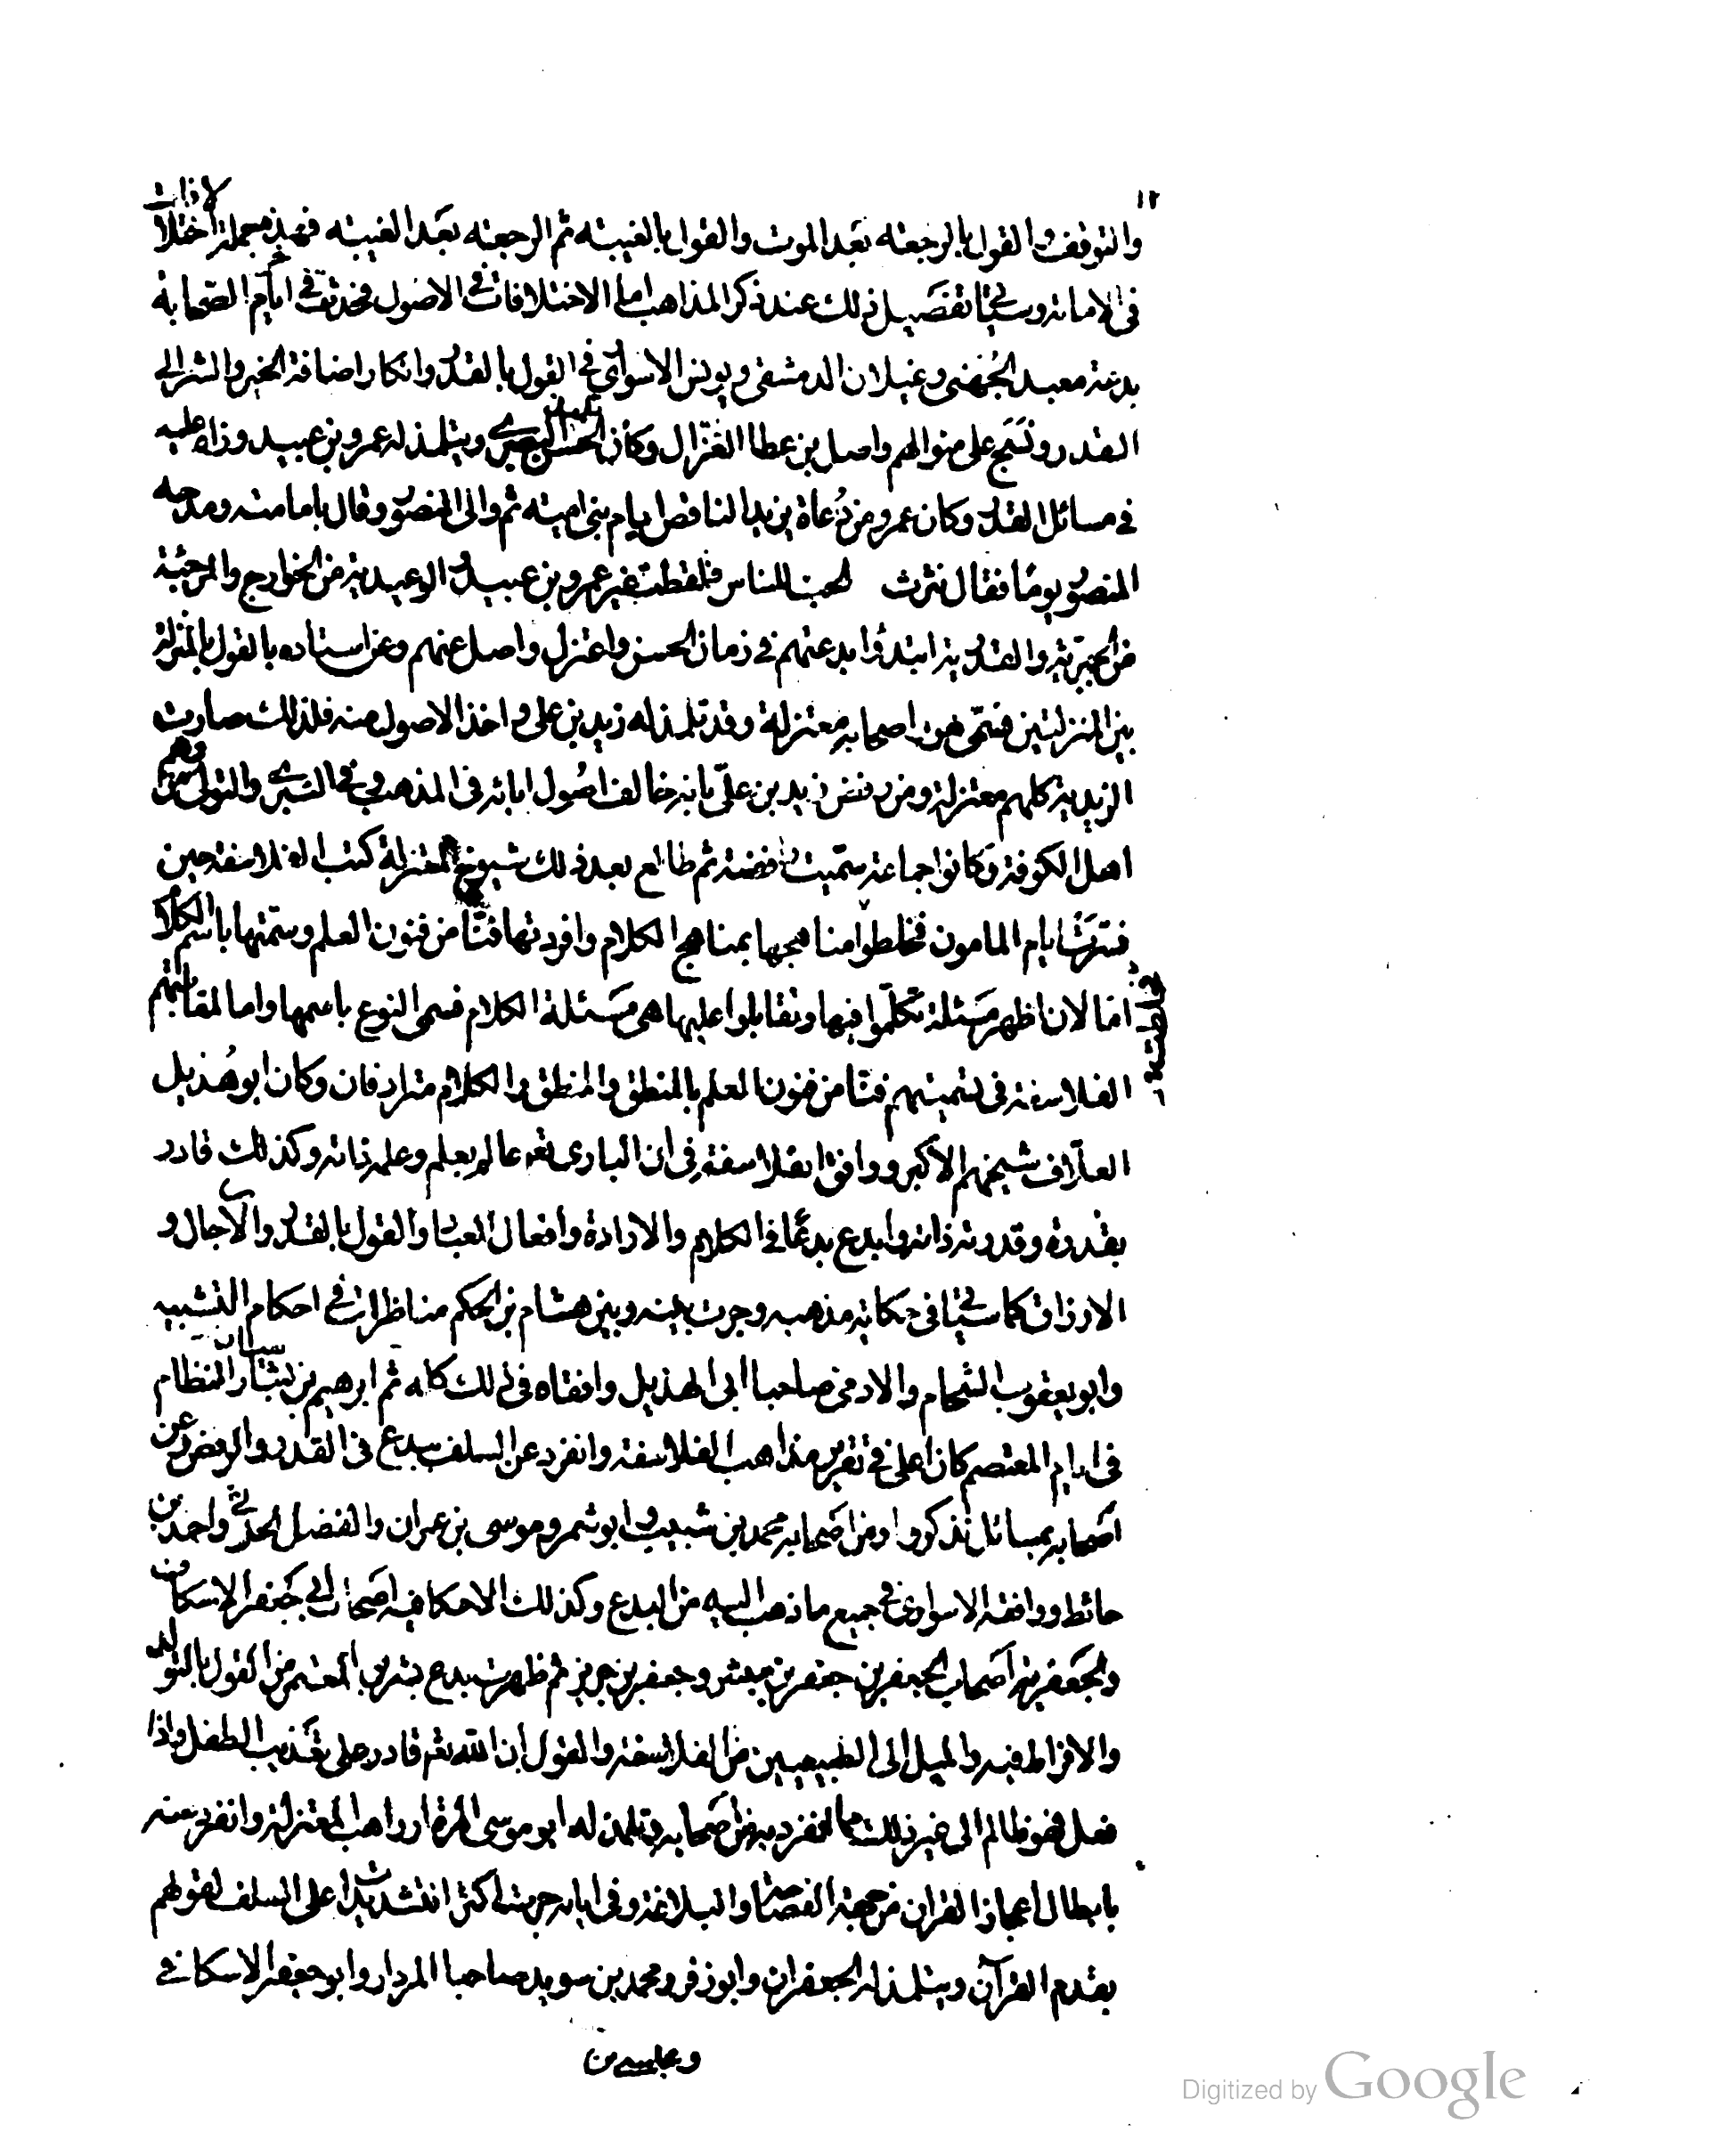 ١٢
والتوقف والقول بالرجعته بعد الموت والقول بالغيبته ثم الرجعته بعد الغيبته فهذه جملة اختلافات
فى الامامة وسيأتى تفصيل ذلك عند ذكر المذاهب اما الاختلافات فى الاصول فحدثت فى ايام الصحابة
بدعة معبد الجهنى وغيلان الدمشقى ويونس الاسوارى فى القول بالقدر وانكار اضافة الخير والشر الى
القدر ونسج على منوالهم واصل بن عطا الغزال وكان تلميذ الحسن البصرى ويتلمذ له عمرو بن عبيد وزاد عليه
فى مسائل القدر وكان عمرو من دعاة يزيد الناقص ايام بنى اميته ثم والى المنصور وقال بامامته ومدحه
المنصور يوما فقال نثرت الحب للناس فلقطت غير عمرو بن عبيد والوعيدية من الخوارج والمرجئة
من الجبرية والقدرية ابتدوا بدعتهم فى زمان الحسن واعتزل واصل عنهم وعن استاده بالقول بالمنزلة
بين المنزلتين فسمى هو واصحابه معتزلة وقد تلمذ له زيد بن على واخذ الاصول منه فلذلك صارت
الزيدية كلهم معتزلة ومن رفض زيد بن على بانه خالف اصول ابائه فى المذهب وفى التبرى والتولى وهم من
اهل الكوفة وكانوا جماعة سميت رافضة ثم طالع بعد ذلك شيوخ المعتزلة كتب الفلاسفة حين
فسرت ايام المامون فخلطوا مناهجها بمناهج الكلام وافردتها فنا من فنون العلم وسمتها باسم الكلام
اما لان اظهر مسئلة تكلموا فيها وتقابلوا عليها هى مسئلة الكلام فسمى النوع باسمها واما لمقابلتهم
الفلاسفة فى تسميتهم فنا من فنون العلم بالمنطق والمنطق والكلام مترادفان وكان ابو هذيل
العلاف شيخهم الاكبر ووافق الفلاسفة فى ان البارى تعه عالم بعلم وعلمه ذاته وكذلك قادر
بقدرة وقدرته ذاته وابدع بدعا فى الكلام والارادة وافعال العباد والقول بالقدر والآجال و
الارزاق كما سيأتى فى حكاية مذهبه وجرت بينه وبين هشام بن الحكم مناظرات فى احكام التشبيه
وابو يعقوب الشحام والادمى صاحبا ابى الهذيل وافقاه فى ذلك كله ثم ابرهيم بن سيار النظام
فى ايام المعتصم كان اعلى فى تقرير مذاهب الفلاسفة وانفرد عن السلف ببدع فى القدر والرفض وعن
اصحابه بمسائل نذكروا ومن اصحابه محمد بن شبيب وابو شمر وموسى بن عمران والفضل الحدثى واحمد بن
حائط ووافقه الاسوارى فى جميع ما ذهب اليه من البدع وكذلك الاسكافية اصحاب ابى جعفر الاسكافى
والجعفرية اصحاب الجعفرين جعفر بن مبشر وجعفر بن حرب ثم ظهرت بدع بشر بن المعتمر من القول بالتولد
والافراط فيه والميل الى الطبيعيين من الفلاسفة والقول بان الله تعه قادر على تعذيب الطفل واذا
فعل فهو ظالم الى غير ذلك مما انفرد به من اصحابه وتلمذ له ابو موسى المردار راهب المعتزلة وانفرد منه
بابطال اعجاز القران من جهة الفصاحة والبلاغة وفى ايامه جرت اكثر التشديدات على السلف لقولهم
بقدم القرآن ويتلمذ له الجعفران وابو زفر ومحمد بن سويد صاحبا المردار وابو جعفر الاسكافى
وعيسى بن
Digitized by Google